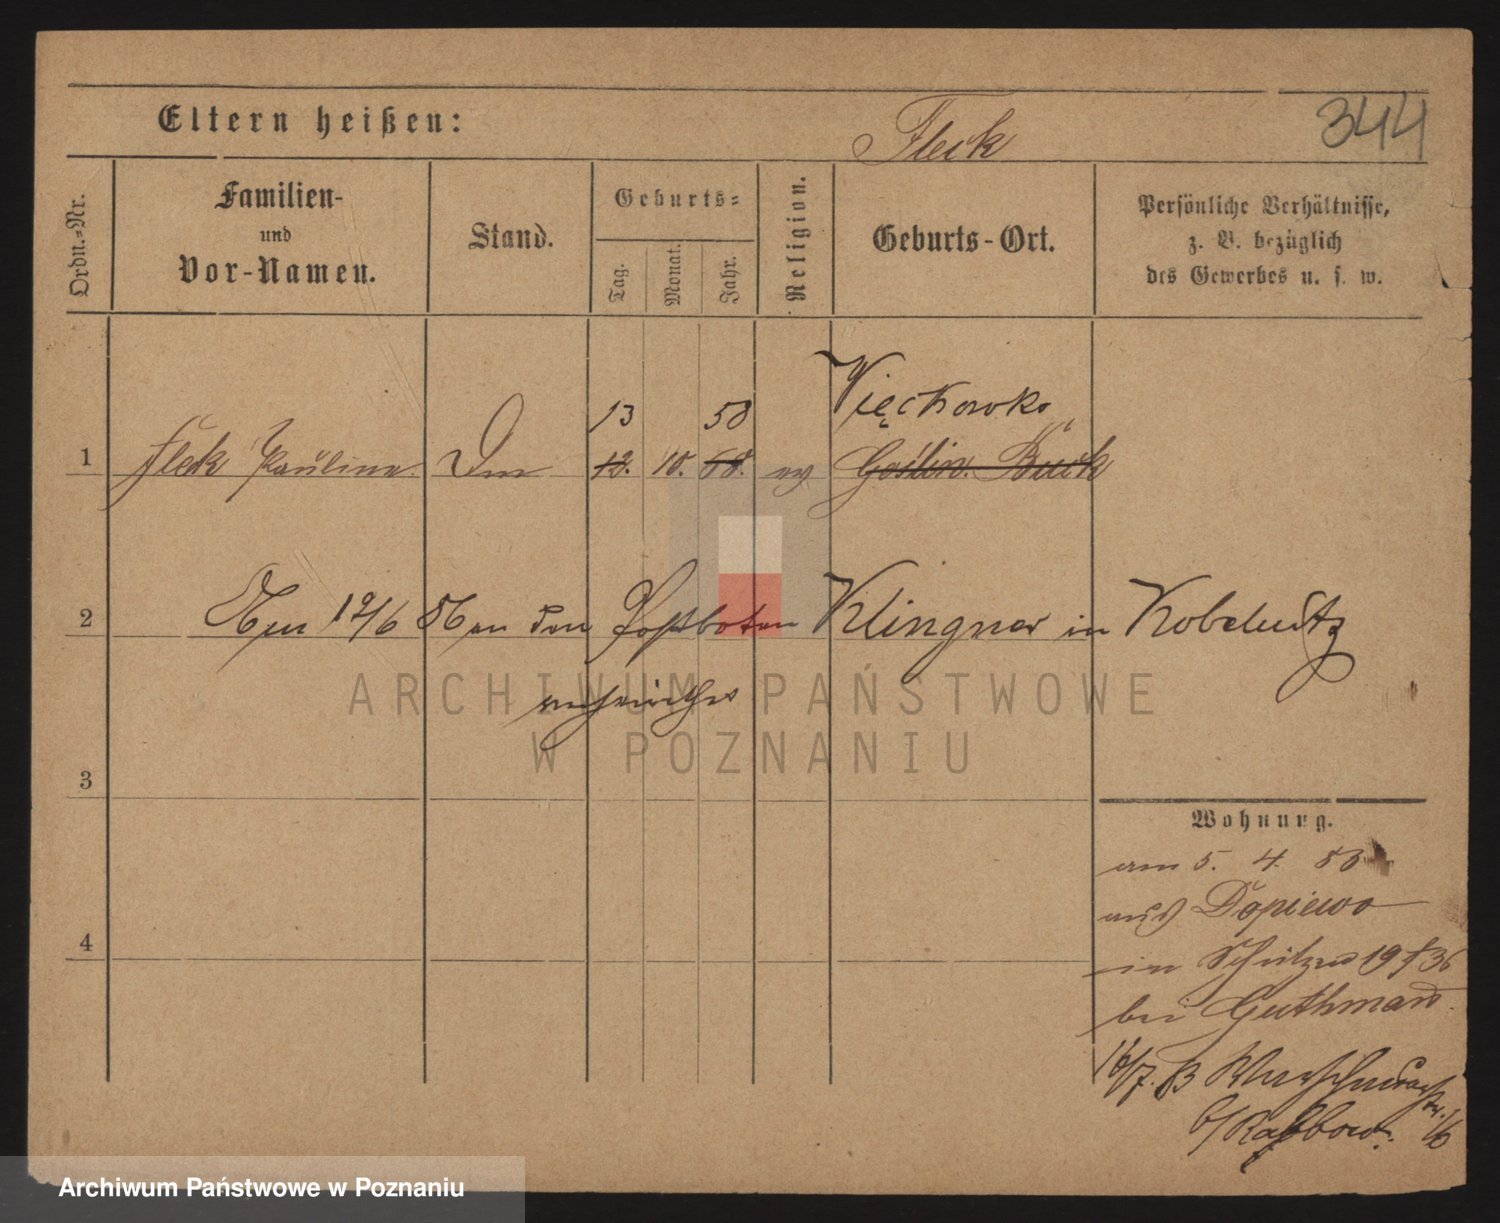 Eltern heißen:
Fleck
344
Ordn.-Nr.
Familien-
und
Vor-Namen.
Stand.
Geburts-
Tag.
Monat.
Jahr.
Religion.
Geburts-Ort.
Persönliche Verhältnisse,
z. B. bezüglich
des Gewerbes u. s. w.
13 58 Więckowko
1 Fleck Pauline 12. 10. 68. ev Goslin. Buck
2 den Postboten Klingner in Kobelnitz
3
4
Wohnung.
am 5. 4. 83
aus Dopiewo
in Schützen 19
bei Guthmann
16/7.
b/ Rabbow.
ARCHIWUM PAŃSTWOWE
W POZNANIU
Archiwum Państwowe w Poznaniu